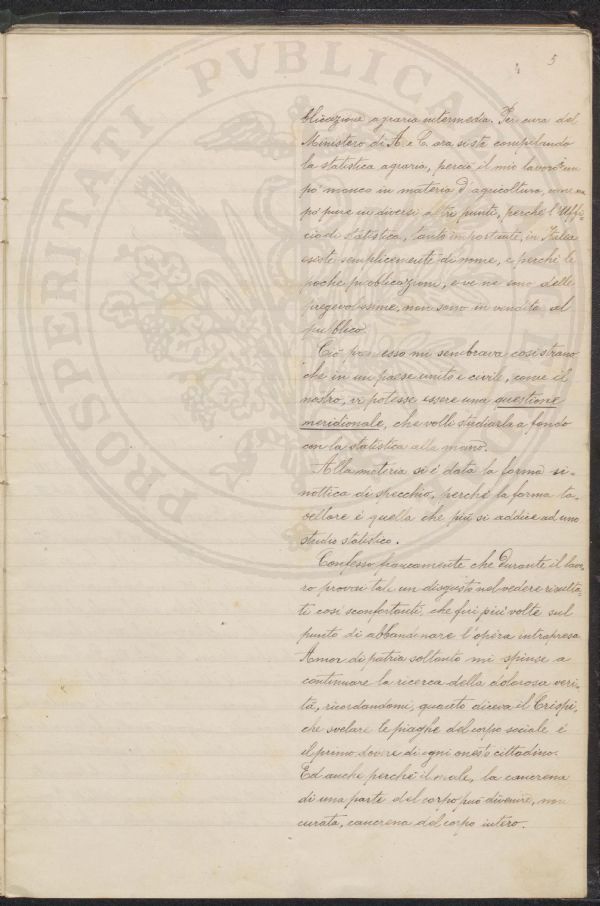 5
blicazione agraria intermedia. Per cura del
Ministero di A. e C. ora si sta compilando
la statistica agraria, perciò il mio lavoro è un
pò monco in materia d'agricoltura, come un
pò pure in diversi altri punti, perchè l'Uffi-
cio di statistica, tanto importante, in Italia
esiste semplicemente di nome, e perchè le
poche pubblicazioni, e ve ne sono delle
pregevolissime, non sono in vendita al
pubblico.
Ciò per esso mi sembrava così strano
che in un paese unito e civile, come il
nostro, vi potesse essere una questione
meridionale, che volli studiarla a fondo
con la statistica alla mano.
Alla materia si è data la forma si-
nottica di specchio, perchè la forma ta-
bellare è quella che più si addice ad uno
studio statistico.
Confesso francamente che durante il lavo-
ro provai tale un disgusto nel vedere risulta-
ti così sconfortanti, che fui più volte sul
punto di abbandonare l'opera intrapresa
Amor di patria soltanto mi spinse a
continuare la ricerca della dolorosa veri-
tà, ricordandomi, quanto diceva il Crispi,
che svelare le piaghe del corpo sociale è
il primo dovere di ogni onesto cittadino.
Ed anche perchè il male, la cancrena
di una parte del corpo può divenire, non
curata, cancrena del corpo intero.
PROSPERITATI PVBLICAE